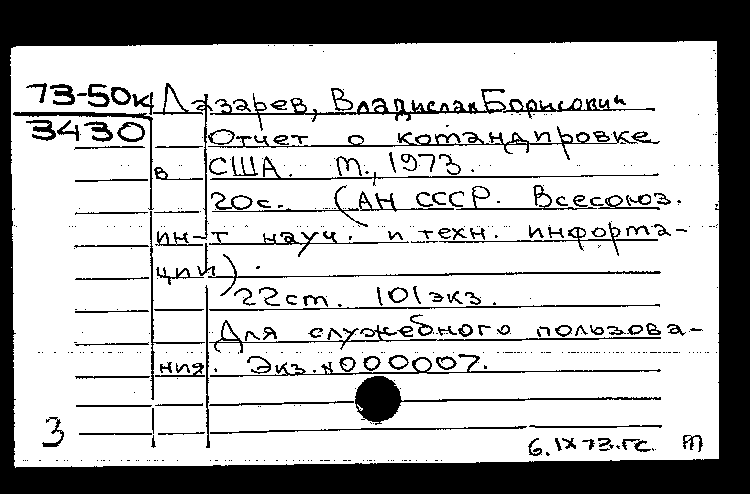 73-50к Лазарев, Владислав Борисович
3430 Отчет о командировке
в США. М., 1973.
20с. (АН СССР. Всесоюз.
ин-т науч. и техн. информа-
ции).
22см. 101экз.
Для служебного пользова-
ния. Экз. н000007.
3
6.IX 73.гс. м